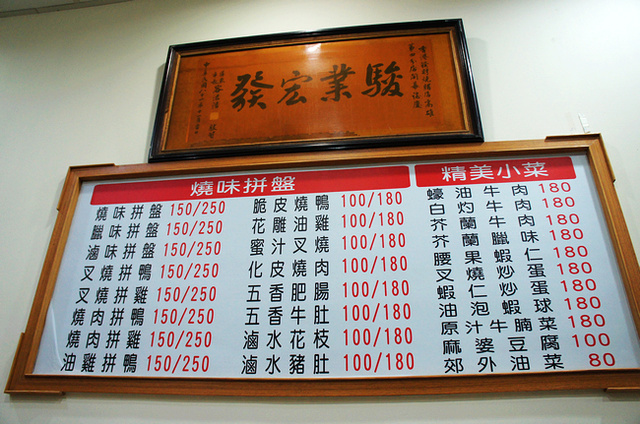 第四分店開幕誌慶
駿業宏發
燒味拼盤
燒味拼盤 150/250
臘味拼盤 150/250
滷味拼盤 150/250
叉燒拼鴨 150/250
叉燒拼雞 150/250
燒肉拼鴨 150/250
燒肉拼雞 150/250
油雞拼鴨 150/250
脆皮燒鴨 100/180
花雕油雞 100/180
蜜汁叉燒 100/180
化皮燒肉 100/180
五香肥腸 100/180
五香牛肚 100/180
滷水花枝 100/180
滷水豬肚 100/180
精美小菜
蠔油牛肉 180
白灼牛肉 180
芥蘭牛肉 180
芥蘭臘味 180
腰果蝦仁 180
叉燒炒蛋 180
蝦仁炒蛋 180
油泡蝦球 180
原汁牛腩菜 180
麻婆豆腐 100
郊外油菜 80